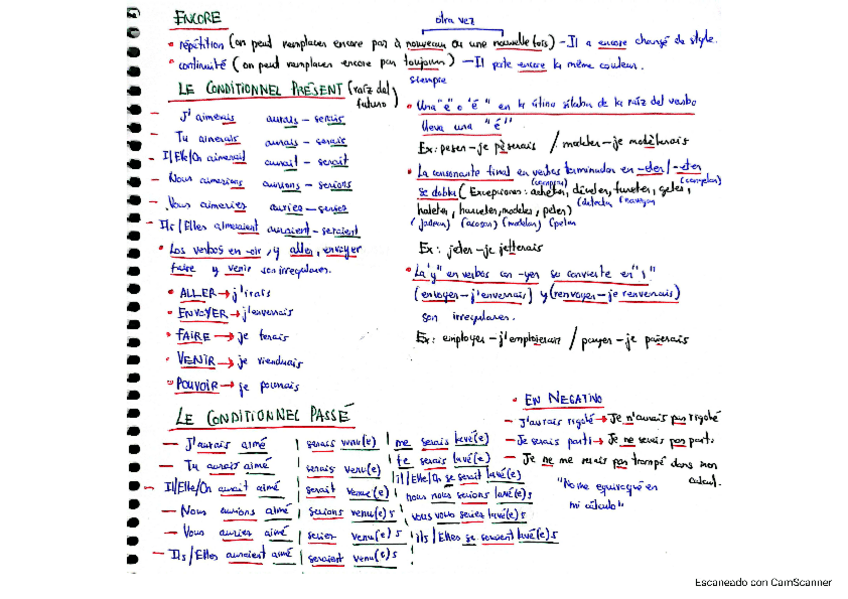 ENCORE
otra vez
• répétition (on peut remplacer encore par à nouveau ou une nouvelle fois) – Il a encore changé de style.
• continuité (on peut remplacer encore par toujours) – Il porte encore la même couleur.
siempre
LE CONDITIONNEL PRÉSENT (raíz del futuro)
– J'aimerais aurais – serais
– Tu aimerais aurais – serais
– Il/Elle/On aimerait aurait – serait
– Nous aimerions aurions – serions
– Vous aimeriez auriez – seriez
– Ils/Elles aimeraient auraient – seraient
• Los verbos en -oir, y aller, envoyer
faire y venir son irregulares.
• ALLER → j'irais
• ENVOYER → j'enverrais
• FAIRE → je ferais
• VENIR → je viendrais
• POUVOIR → je pourrais
• Una "e" o "é" en la última sílaba de la raíz del verbo
lleva una "è"
Ex: peser – je pèserais / modeler – je modèlerais
• La consonante final en verbos terminados en -eler / -eter
se dobla (Excepciones: acheter, geler,
haleter, modeler, peler)
Ex: jeter – je jetterais
• La "y" en verbos con -yer se convierte en "i"
(envoyer – j'enverrais) y (renvoyer – je renverrais)
son irregulares.
Ex: employer – j'emploierais / payer – je paierais
LE CONDITIONNEL PASSÉ
– J'aurais aimé | serais venu(e) | me serais lavé(e)
– Tu aurais aimé | serais venu(e) | te serais lavé(e)
– Il/Elle/On aurait aimé | serait venue(e) | il/Elle/On se serait lavé(e)
– Nous aurions aimé | serions venu(e)s | nous nous serions lavé(e)s
– Vous auriez aimé | seriez venu(e)s | vous vous seriez lavé(e)s
– Ils/Elles auraient aimé | seraient venu(e)s | ils/Elles se seraient lavé(e)s
• EN NEGATIVO
– J'aurais rigolé → Je n'aurais pas rigolé
– Je serais parti → Je ne serais pas parti
– Je ne me serais pas trompé dans mon
calcul.
"No me equivoqué en
mi cálculo"
Escaneado con CamScanner